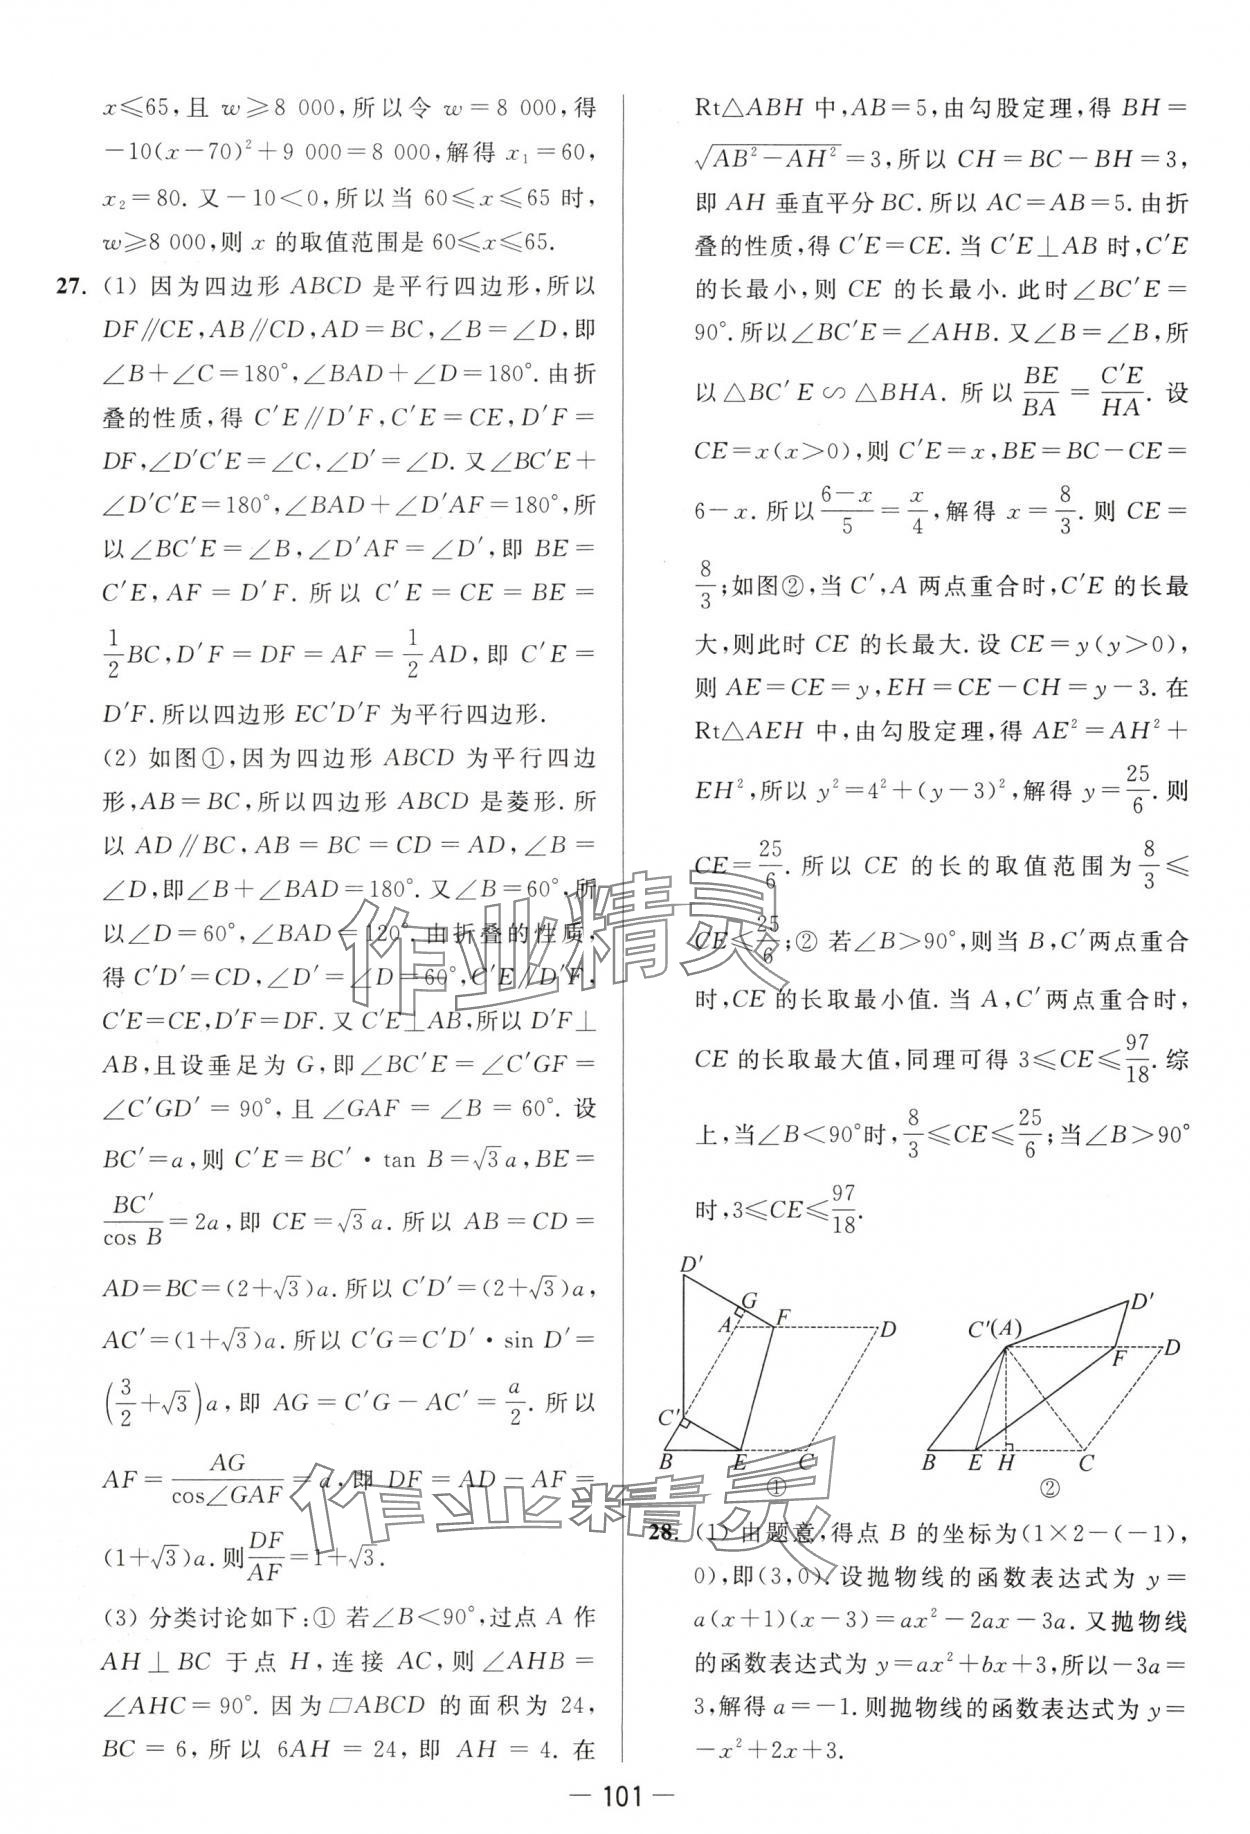 x≤65,且 w≥8 000,所以令 w=8 000,得
-10(x-70)²+9 000=8 000,解得 x₁=60,
x₂=80.又-10<0,所以当 60≤x≤65 时,
w≥8 000,则 x 的取值范围是 60≤x≤65.
27. (1) 因为四边形 ABCD 是平行四边形,所以
DF∥CE,AB∥CD,AD=BC,∠B=∠D,即
∠B+∠C=180°,∠BAD+∠D=180°.由折
叠的性质,得 C′E∥D′F,C′E=CE,D′F=
DF,∠D′C′E=∠C,∠D′=∠D.又∠BC′E+
∠D′C′E=180°,∠BAD+∠D′AF=180°,所
以∠BC′E=∠B,∠D′AF=∠D′,即 BE=
C′E,AF=D′F.所以 C′E=CE=BE=
1/2 BC,D′F=DF=AF=1/2 AD,即 C′E=
D′F.所以四边形 EC′D′F 为平行四边形.
(2) 如图①,因为四边形 ABCD 为平行四边
形,AB=BC,所以四边形 ABCD 是菱形.所
以 AD∥BC,AB=BC=CD=AD,∠B=
∠D,即∠B+∠BAD=180°.又∠B=60°,所
以∠D=60°,∠BAD=120°.由折叠的性质,
得 C′D′=CD,∠D′=∠D=60°,C′E∥D′F,
C′E=CE,D′F=DF.又 C′E⊥AB,所以 D′F⊥
AB,且设垂足为 G,即∠BC′E=∠C′GF=
∠C′GD′=90°,且∠GAF=∠B=60°.设
BC′=a,则 C′E=BC′·tan B=√3a,BE=
BC′/cos B=2a,即 CE=√3a.所以 AB=CD=
AD=BC=(2+√3)a.所以 C′D′=(2+√3)a,
AC′=(1+√3)a.所以 C′G=C′D′·sin D′=
(3/2+√3)a,即 AG=C′G-AC′=a/2.所以
AF=AG/cos∠GAF=a.即 DF=AD-AF=
(1+√3)a.则DF/AF=1+√3.
(3) 分类讨论如下:① 若∠B<90°,过点 A 作
AH⊥BC 于点 H,连接 AC,则∠AHB=
∠AHC=90°.因为▱ABCD 的面积为 24,
BC=6,所以 6AH=24,即 AH=4.在
Rt△ABH 中,AB=5,由勾股定理,得 BH=
√(AB²-AH²)=3,所以 CH=BC-BH=3,
即 AH 垂直平分 BC.所以 AC=AB=5.由折
叠的性质,得 C′E=CE.当 C′E⊥AB 时,C′E
的长最小,则 CE 的长最小.此时∠BC′E=
90°.所以∠BC′E=∠AHB.又∠B=∠B,所
以△BC′E∽△BHA.所以BE/BA=C′E/HA.设
CE=x(x>0),则 C′E=x,BE=BC-CE=
6-x.所以(6-x)/5=x/4,解得 x=8/3.则 CE=
8/3;如图②,当 C′,A 两点重合时,C′E 的长最
大,则此时 CE 的长最大.设 CE=y(y>0),
则 AE=CE=y,EH=CE-CH=y-3.在
Rt△AEH 中,由勾股定理,得 AE²=AH²+
EH²,所以 y²=4²+(y-3)²,解得 y=25/6.则
CE=25/6.所以 CE 的长的取值范围为8/3≤
CE≤25/6;② 若∠B>90°,则当 B,C′两点重合
时,CE 的长取最小值.当 A,C′两点重合时,
CE 的长取最大值,同理可得 3≤CE≤97/18.综
上,当∠B<90°时,8/3≤CE≤25/6;当∠B>90°
时,3≤CE≤97/18.
D′
G
A
F
D
C′
B
E
C
①
D′
C′(A)
F
D
B
E
H
C
②
28. (1) 由题意,得点 B 的坐标为(1×2-(-1),
0),即(3,0).设抛物线的函数表达式为 y=
a(x+1)(x-3)=ax²-2ax-3a.又抛物线
的函数表达式为 y=ax²+bx+3,所以-3a=
3,解得 a=-1.则抛物线的函数表达式为 y=
-x²+2x+3.
— 101 —
作业精灵
作业精灵